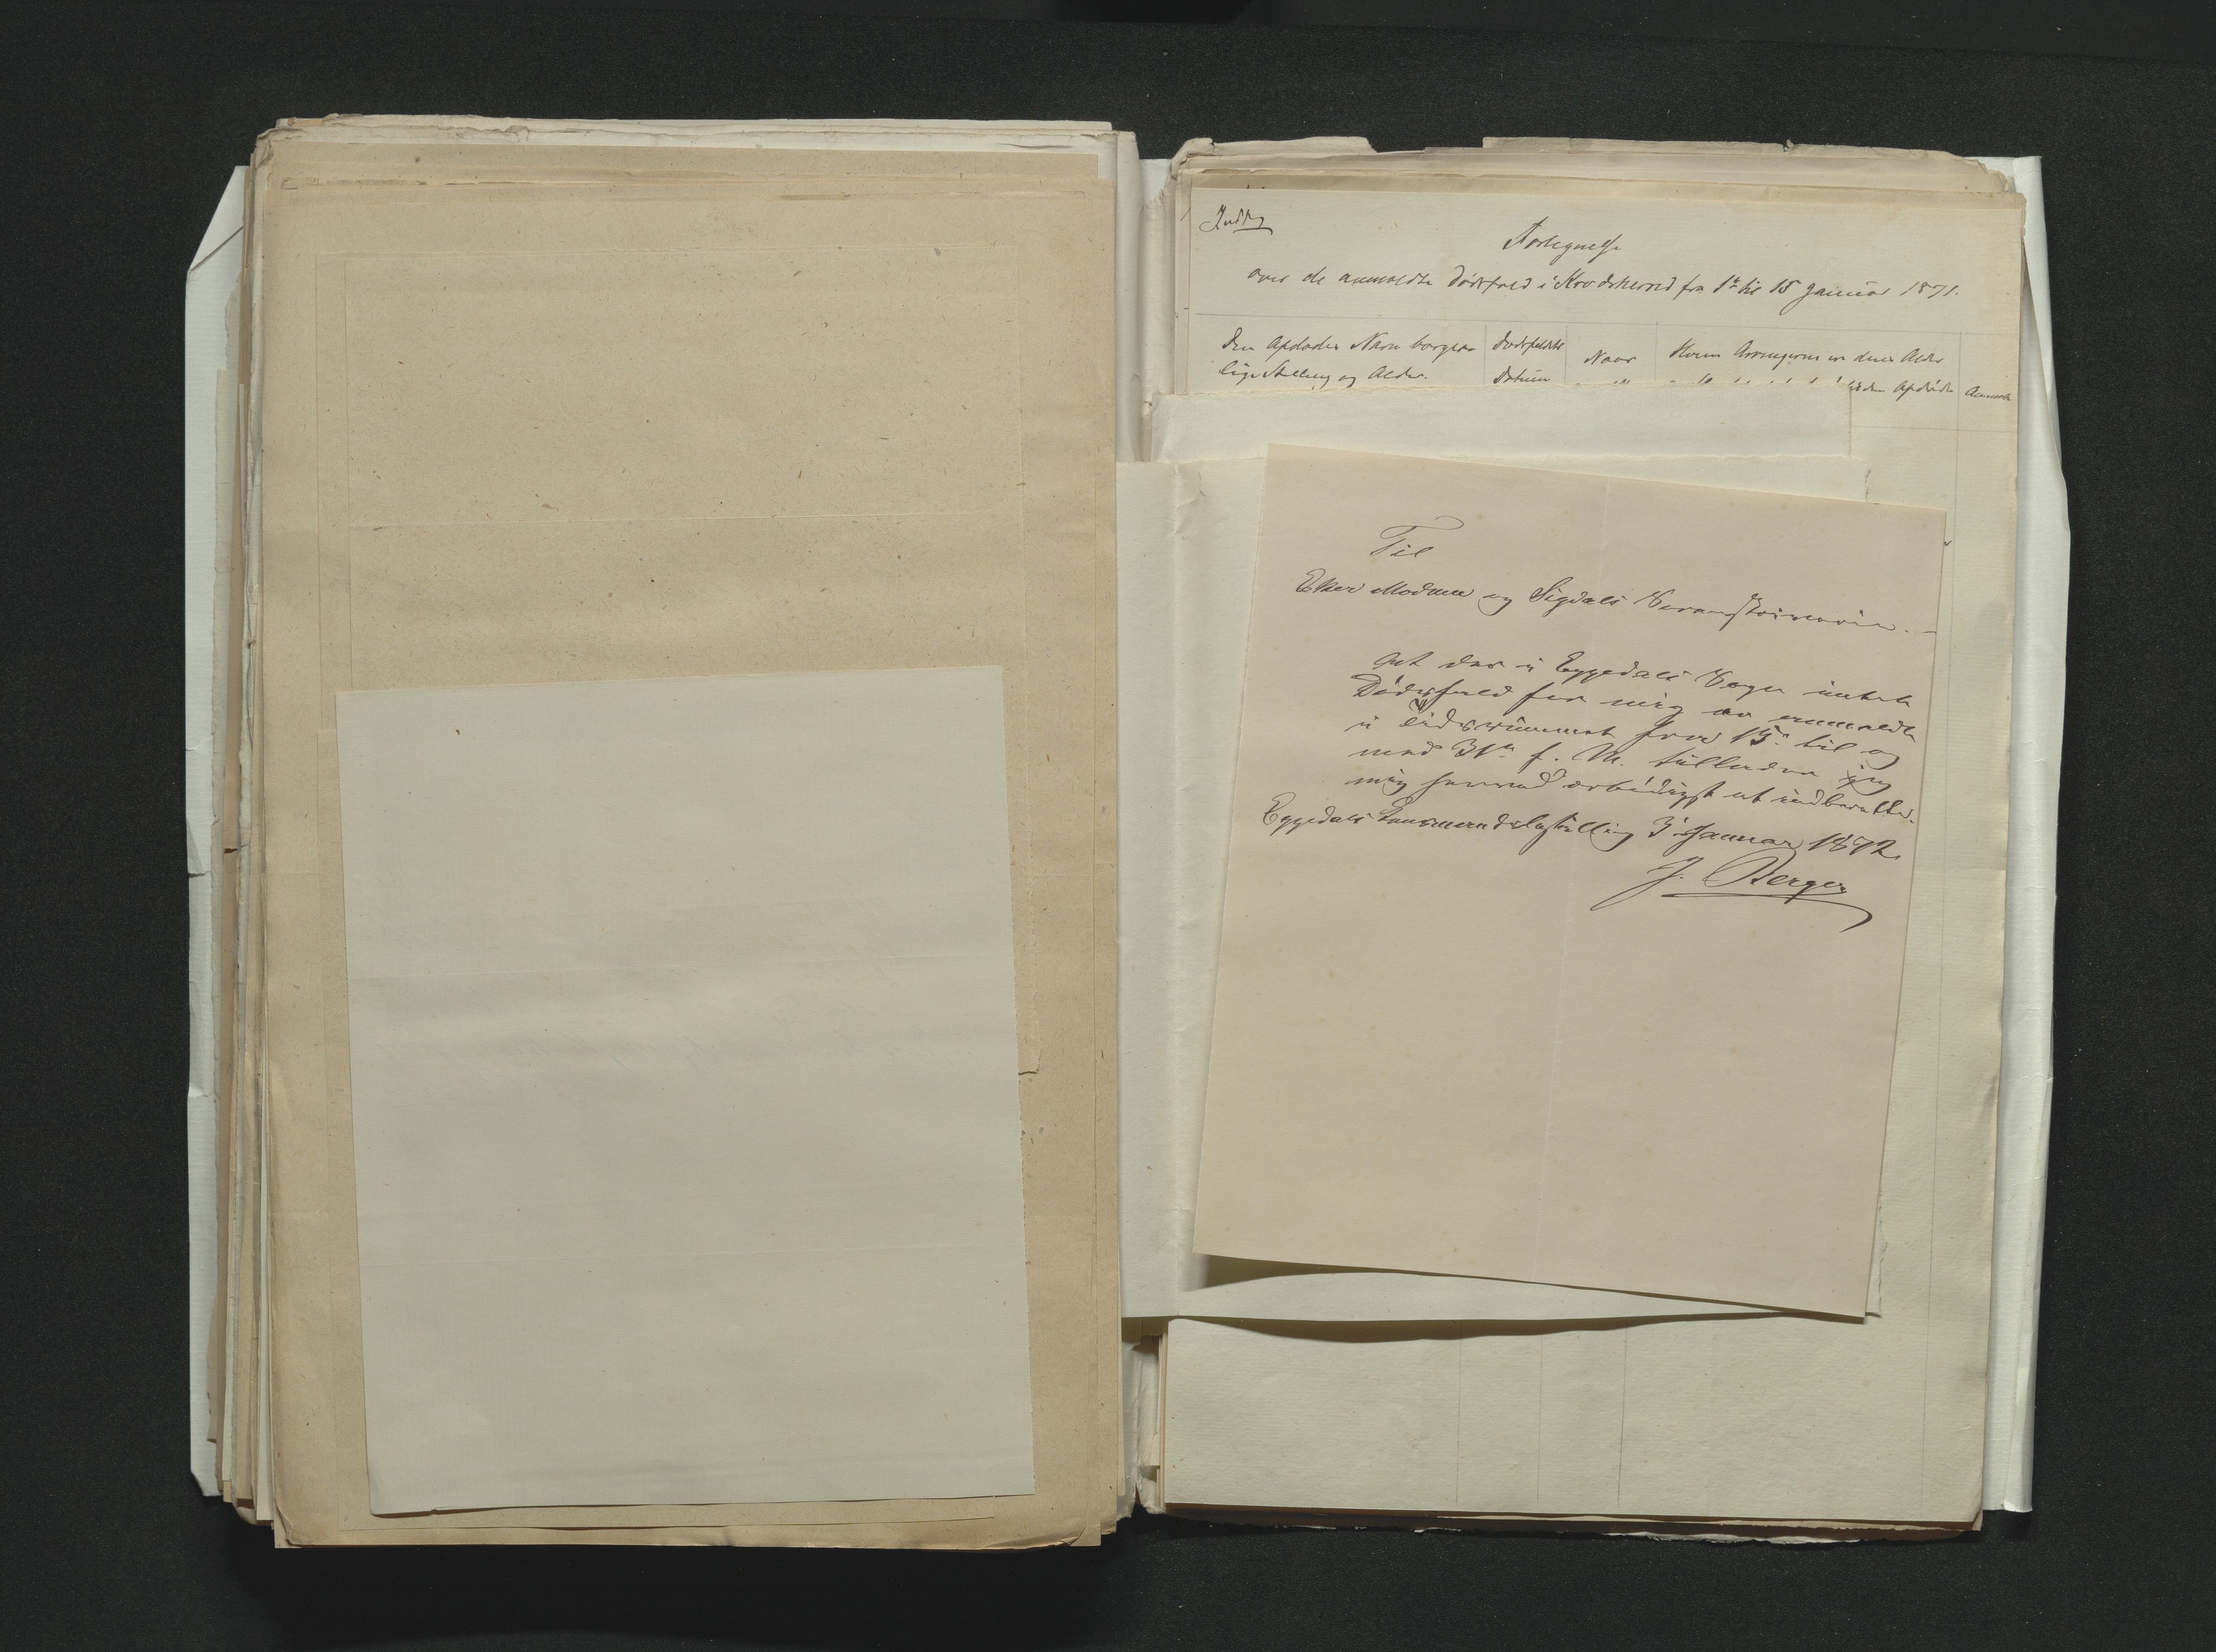 Fortegnelse
over de anmeldte Dødsfald i Krødsherred fra 1ste til 15 Januar 1871.
Den Afdødes Navn borger-
lige Stilling og Alder.
Dødsfaldets
Datum
Naar
Hvem Arvingerne er deres Alder
den Afdøde
Anmærk
Til
Eker Modum og Sigdals Sorenskriverie.
At der i Eggedals Sogn intet
Dødsfald for mig er anmeldt
i Tidsrummet fra 15de til og
med 31te f. M. tillader jeg
mig herved ærbødigst at indberette.
Eggedals Lensmandsbestilling 3 Januar 1872
J. Berger